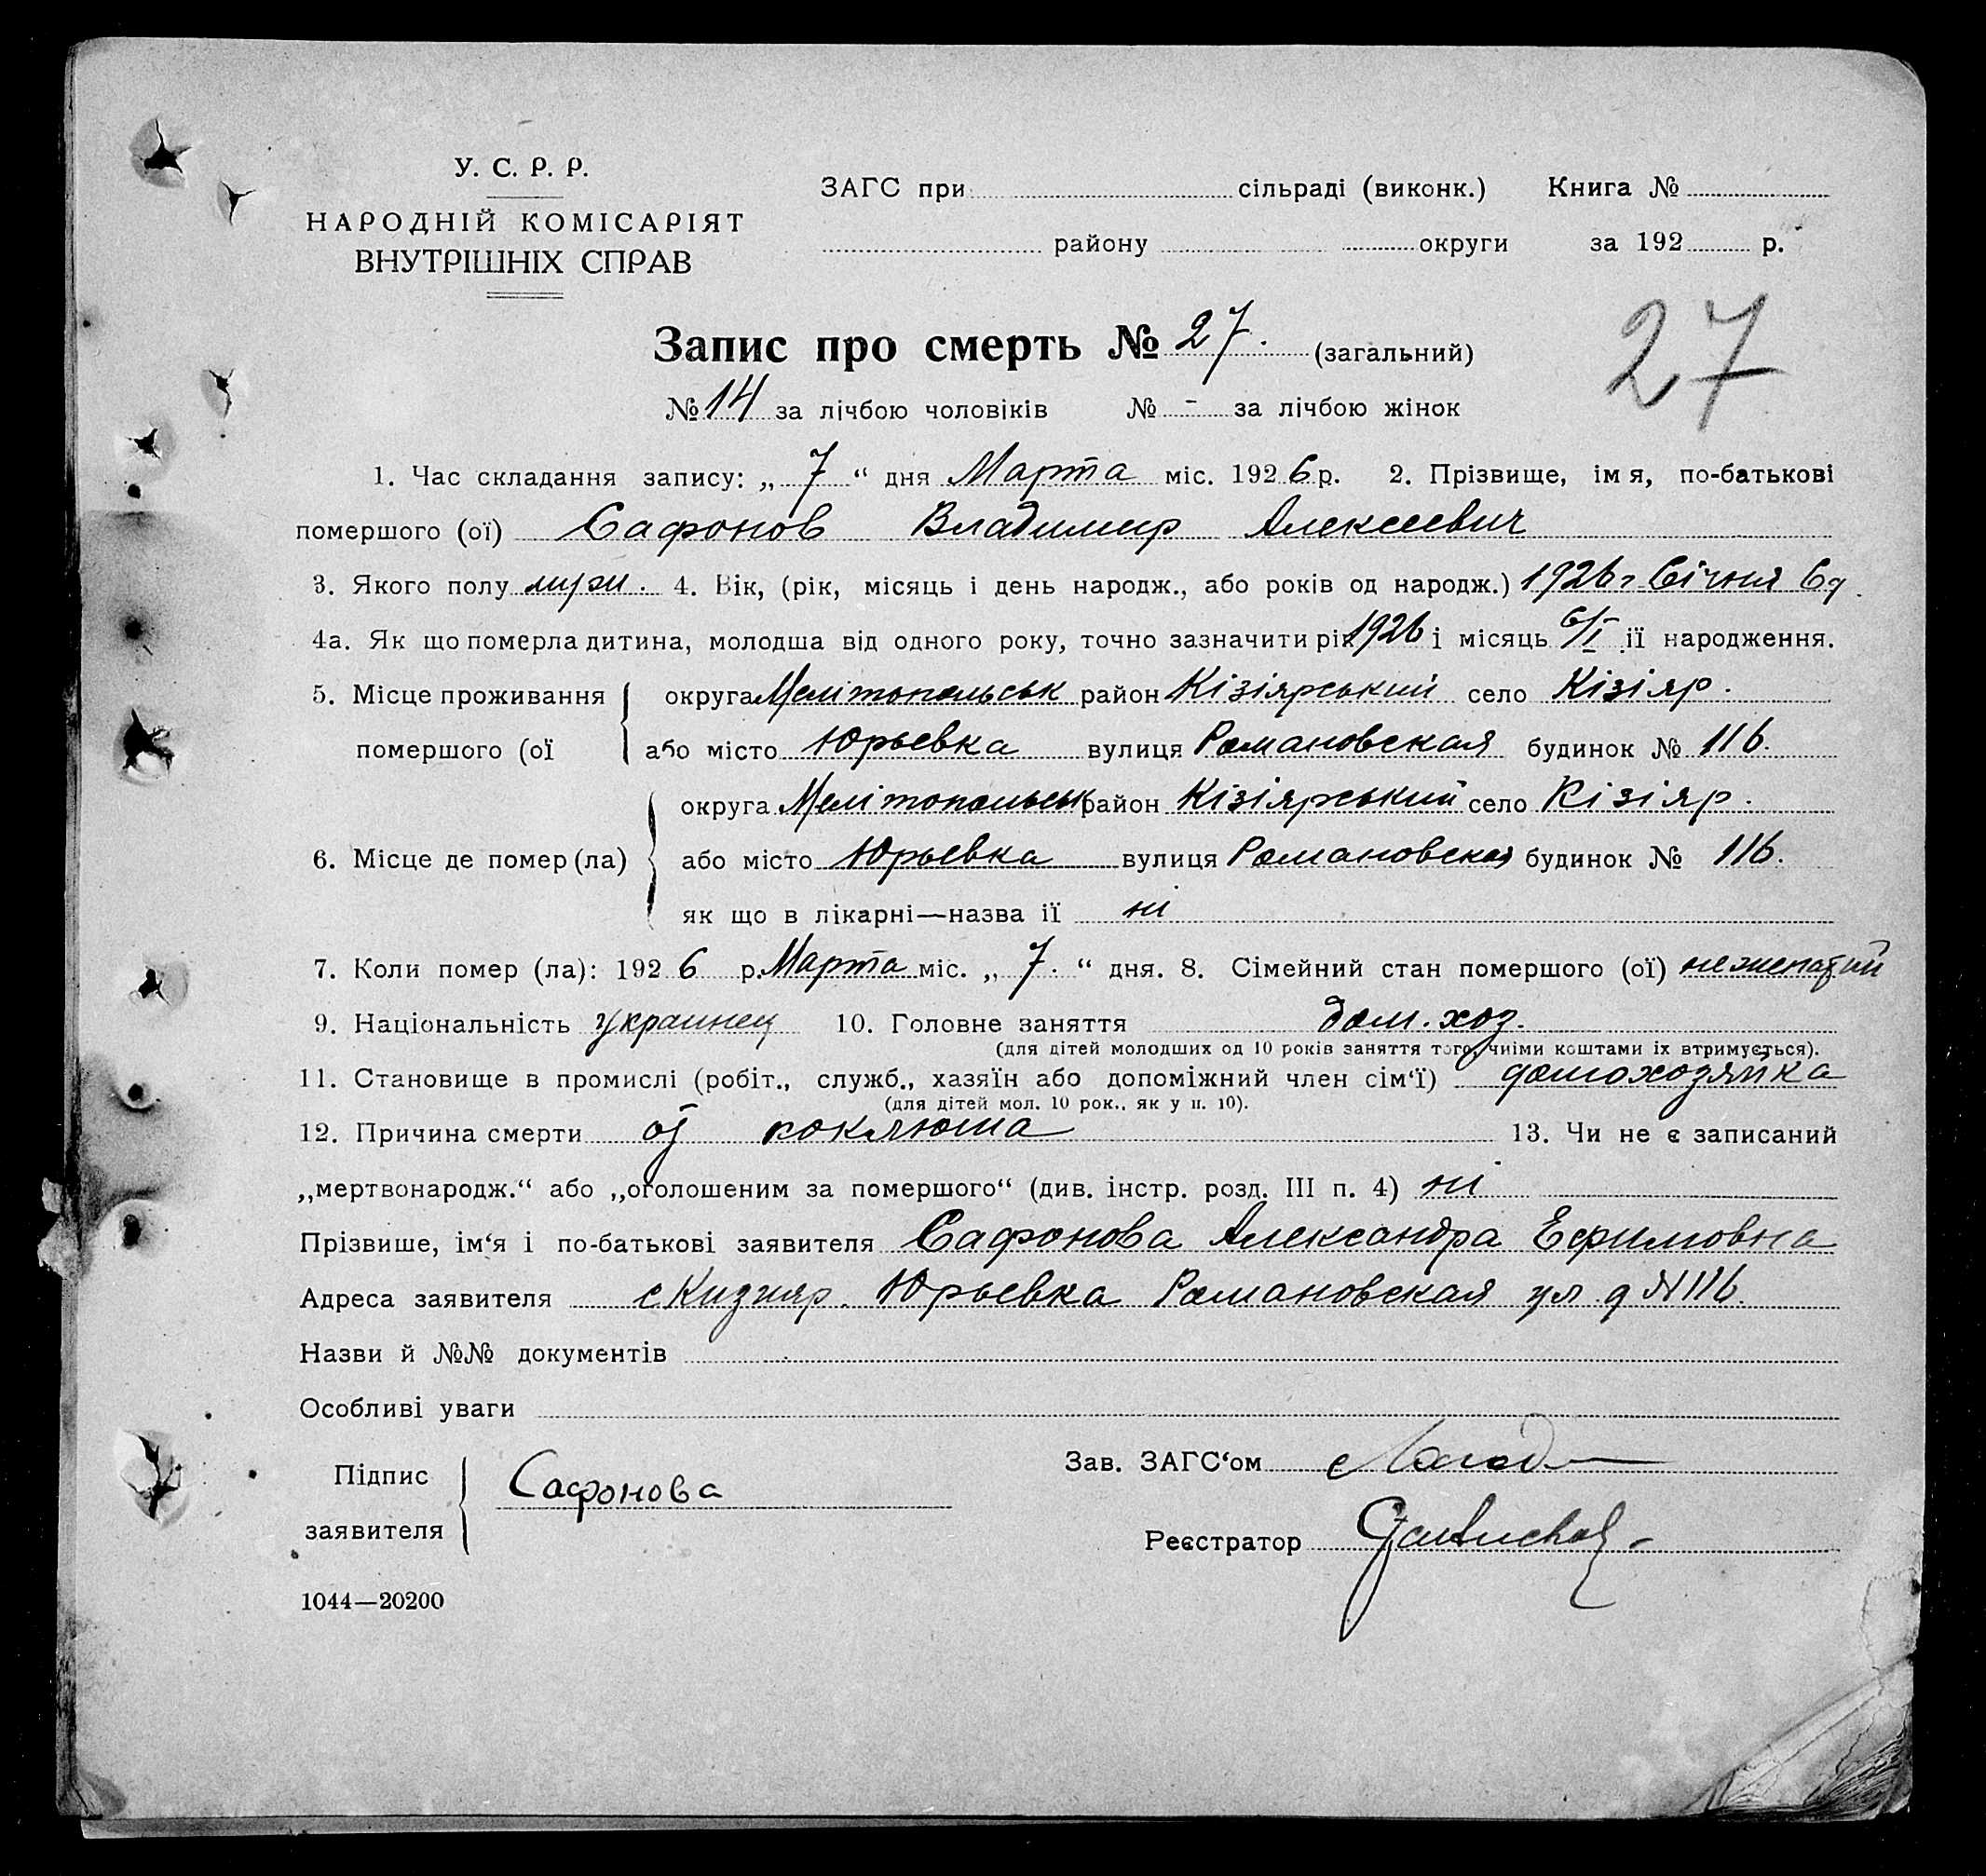 У. С. Р. Р.
НАРОДНІЙ КОМІСАРІЯТ
ВНУТРІШНІХ СПРАВ
ЗАГС при сільраді (виконк.) Книга №
району округи за 192 р.
27
Запис про смерть № 27. (загальний)
№ 14 за лічбою чоловіків № - за лічбою жінок
1. Час складання запису: „ 7 “ дня Марта міс. 1926 р. 2. Прізвище, імя, по-батькові
помершого (ої) Сафонов Владимир Алексеевич
3. Якого полу муж. 4. Вік, (рік, місяць і день народж., або років од народж.) 1926 г Січня 6 д.
4а. Як що померла дитина, молодша від одного року, точно зазначити рік 1926 і місяць 6/I її народження.
5. Місце проживання округа Мелітопольськ район Кізіярський село Кізіяр.
помершого (ої або місто Юрьевка вулиця Романовская будинок № 116.
округа Мелітопольськ район Кізіярський село Кізіяр.
6. Місце де помер (ла) або місто Юрьевка вулиця Романовская будинок № 116.
як що в лікарні—назва її ні
7. Коли помер (ла): 1926 р. Марта міс. „ 7. “ дня. 8. Сімейний стан помершого (ої) неженатий
9. Національність украинец 10. Головне заняття дом. хоз.
(для дітей молодших од 10 років заняття того, чиіми коштами їх втримується).
11. Становище в промислі (робіт., служб., хазяїн або допоміжний член сім‘ї) домохозяйка
(для дітей мол. 10 рок., як у п. 10).
12. Причина смерти от коклюша 13. Чи не є записаний
„мертвонародж.“ або „оголошеним за помершого“ (див. інстр. розд. III п. 4) ні
Прізвише, ім‘я і по-батькові заявителя Сафонова Александра Ефимовна
Адреса заявителя с Кизияр. Юрьевка Романовская ул д N 116.
Назви й №№ документів
Особливі уваги
Підпис
заявителя Сафонова
Зав. ЗАГС‘ом
Реєстратор
1044—20200